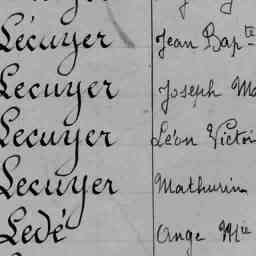 Lécuyer Jean Bapte
Lecuyer Joseph Ma
Lecuyer Léon Victor
Lecuyer Mathurin
Ledé Ange Mie